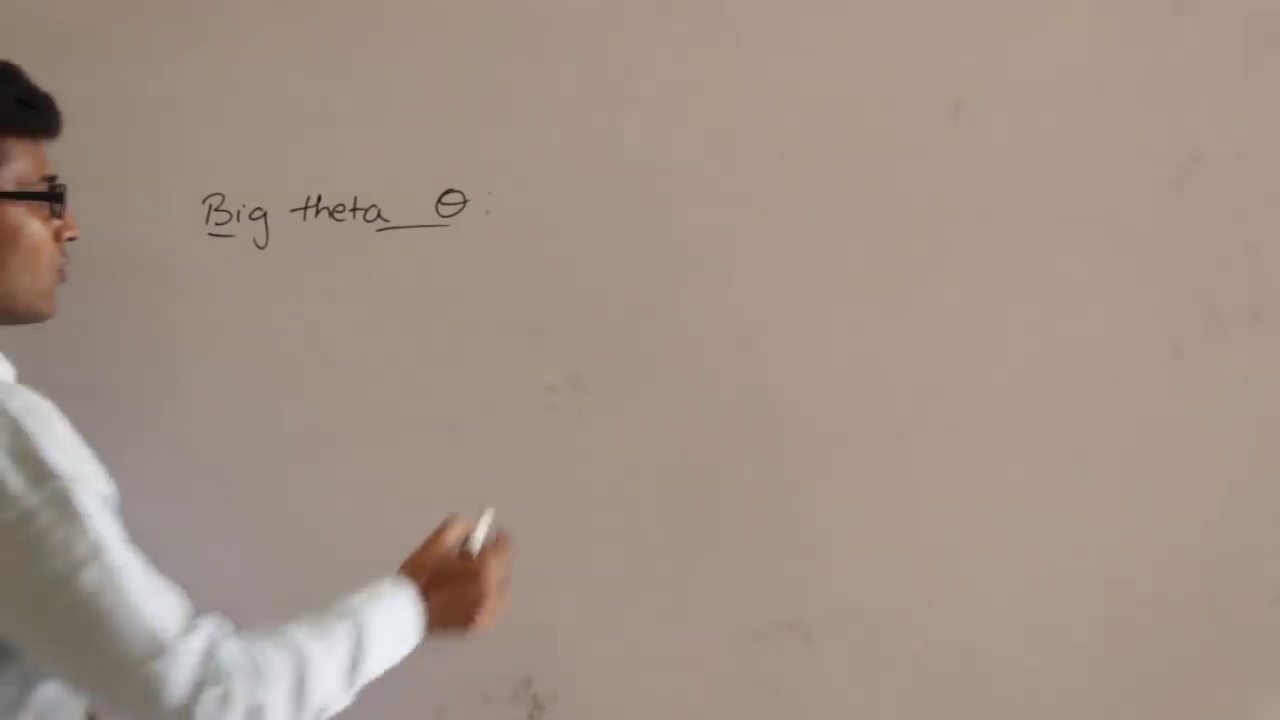 Big theta θ: